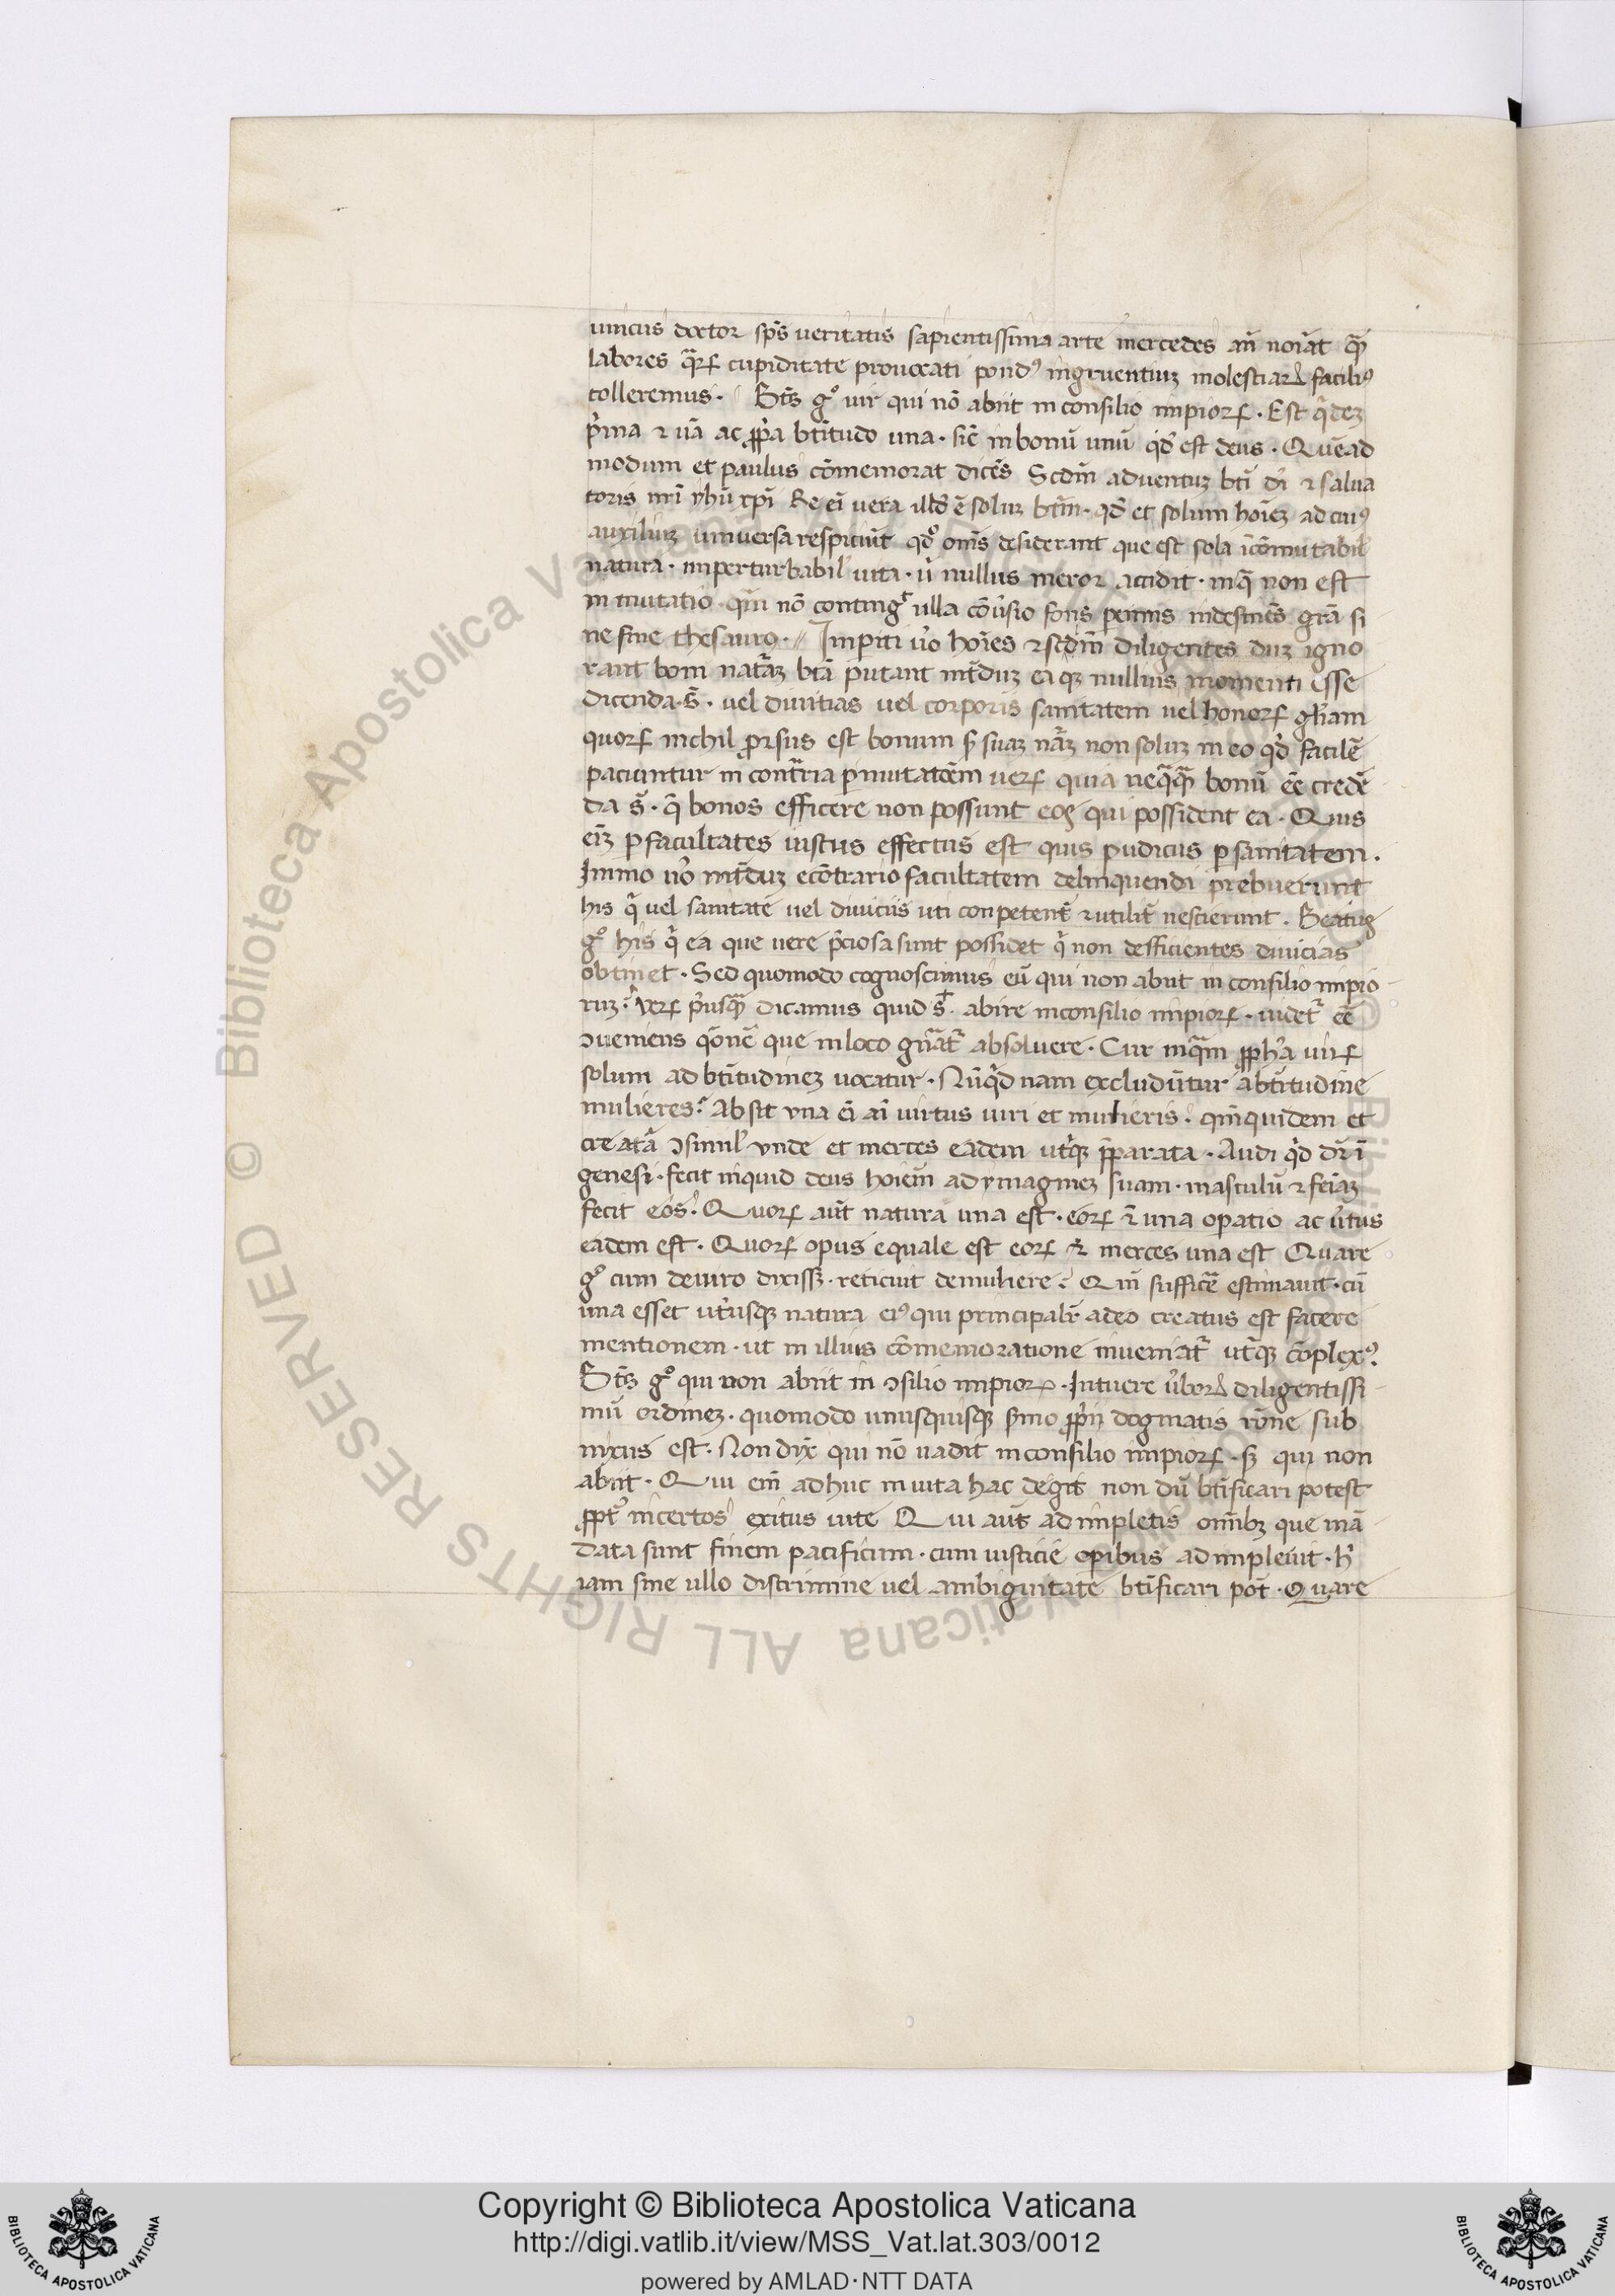 unicus doctor sp̄s veritatis sapientissima arte mercedes an̄
labores cupiditate prouocati pondꝰ ingruentiuꝫ molestiaꝝ faciliꝰ
tolleremus. Bt̄s gͦ uir qui nō abiit in consilio impioꝝ. Est qͥdeꝫ
pͥma ⁊ ūa ac ꝓpͥa bt̄itudo una. sic̄ in bonū unū qd̓ est deus. Quēad
modum et paulus cōmemorat dicēs Scdm̄ aduentuꝫ bt̄i dī ⁊ salua
toris nr̄i yhū xp̄i Re ei̅ vera illd̓ ē soluꝫ bt̄m. qd̓ et solum ad cuiꝰ
auxiliuꝫ universa respiciūt qdͦ om̄s desiderant que est sola icōmutabil̓
natura. imperturbabil̓ uita. u̓ nullus meror accidit. inqͣ non est
inmutatio. qm̄ nō conting᷑ ulla cōu̓sio fons perinnis indesinēs grā si
ne fine thesaurꝰ. Imperiti ūo hoīes ⁊ diligentes duꝫ igno
rant boni natͣꝫ bt̄a putant int̄duꝫ ea qꝫ nullius momenti esse
dicenda. s̄. vel diuitias uel corporis sanitatem uel honoꝝ gl̄iam
quoꝝ nichil ꝓrsus est bonum s̄ suaꝫ nāꝫ non soluꝫ in eo qd̓ facilē
paciuntur in contͣria pͥmutatōem ueꝝ quia neqͣqͣ bonū eē credē
da s̄. qͣ bonos efficere non possunt eos qui possident ea. Quis
eiꝫ ꝑ facultates iustus effectus est quis pudicus ꝑ sanitatem.
Immo ūo int̄duꝫ ecōtrario facultatem delinquendi prebuerunt
his qͥ vel sanitate uel diuiciis uti conpetent̄ ⁊ utilit̄ nescierunt. Beatus
gͦ his qͥ ea que uere pͥciosa sunt possidet qͥ non defficientes diuicias
obtinet. Sed quomodo cognoscimus eū qui non abiit in consilio impio
ruꝫ. Veꝝ pͥusqͣ dicamus quid s̄t abire inconsilio impioꝝ. uidet᷑ eē
ↄueniens qōnē que in loco gn̄at᷑ absolvere. Cur inqͣm ꝓph̄a uiꝝ
solum ad bt̄itudineꝫ uocatur. Nūqͥd nam excludūtur a bt̄itudine
mulieres. Absit una ei̅ ai̅ uirtus uiri et mulieris. qm̄quidem et
creatā ↄsimil̓ unde et merces eadem utͥqꝫ p̄parata. Audi qͥd dr̄ ī
genesi. fecit inquid deus hoiēm ad ymagineꝫ suam. masculū ⁊ feīaꝫ
fecit eos. Quoꝝ aūt natura una est. eoꝝ ⁊ una opatio ac ūtus
eadem est. Quoꝝ opus equale est eoꝝ ⁊ merces una est Quare
gͦ cum de uiro dixissꝫ. reticuit de muliere. Qm̄ sufficē estimauit. cū
una esset utͥusqꝫ natura eiꝰ qui principalr̄ a deo creatus est facere
mentionem. ut in illius cōmemoratione inueniat᷑ utͥqꝫ cōplexꝰ.
Bt̄s gͦ qui non abiit in ↄsilio impioꝝ. Intuere ūboꝝ diligentissi
mū ordineꝫ. quomodo unusquisqꝫ s̄mo ꝓpͥii dogmatis rōne sub
nixus est. Non dix̄ qui nō uadit in consilio impioꝝ. sꝫ qui non
abiit. Qui em̄ adhuc in uita hac degit non dū bt̄ificari potest
ꝓpt̄ incertos exitus uite Qui aūt adimpletis om̄ibꝫ que mā
data sunt finem pacificum. cum iusticie opibus adimpleuit. h̓
iam sine ullo discrimine uel ambiguitate bt̄ificari pōt. Quare
© Biblioteca Apostolica Vaticana ALL RIGHTS RESERVED
Copyright © Biblioteca Apostolica Vaticana
http://digi.vatlib.it/view/MSS_Vat.lat.303/0012
powered by AMLAD·NTT DATA
BIBLIOTECA APOSTOLICA VATICANA
BIBLIOTECA APOSTOLICA VATICANA